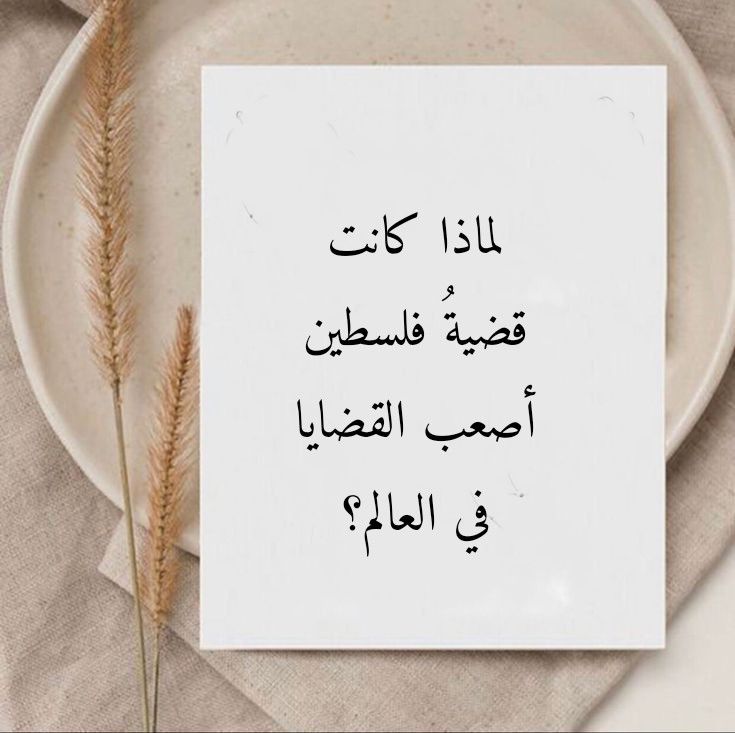 لماذا كانت
قضيةُ فلسطين
أصعب القضايا
في العالم؟